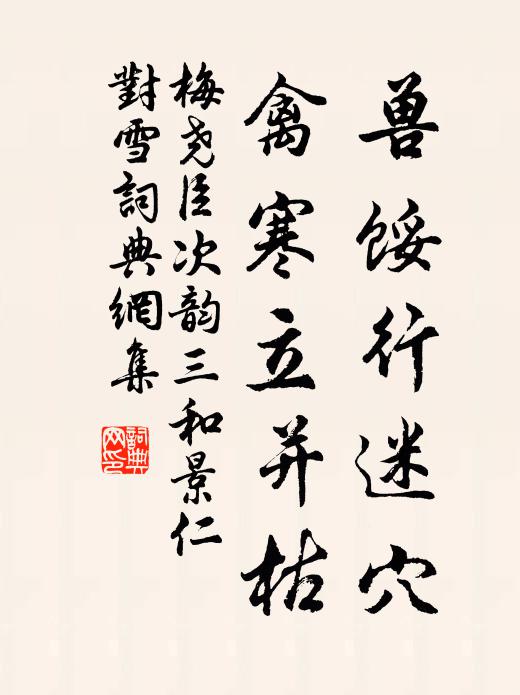 兽馁行迷穴
禽寒立并枯
梅尧臣次韵三和景仁
對雪詞典網集
詞典网印